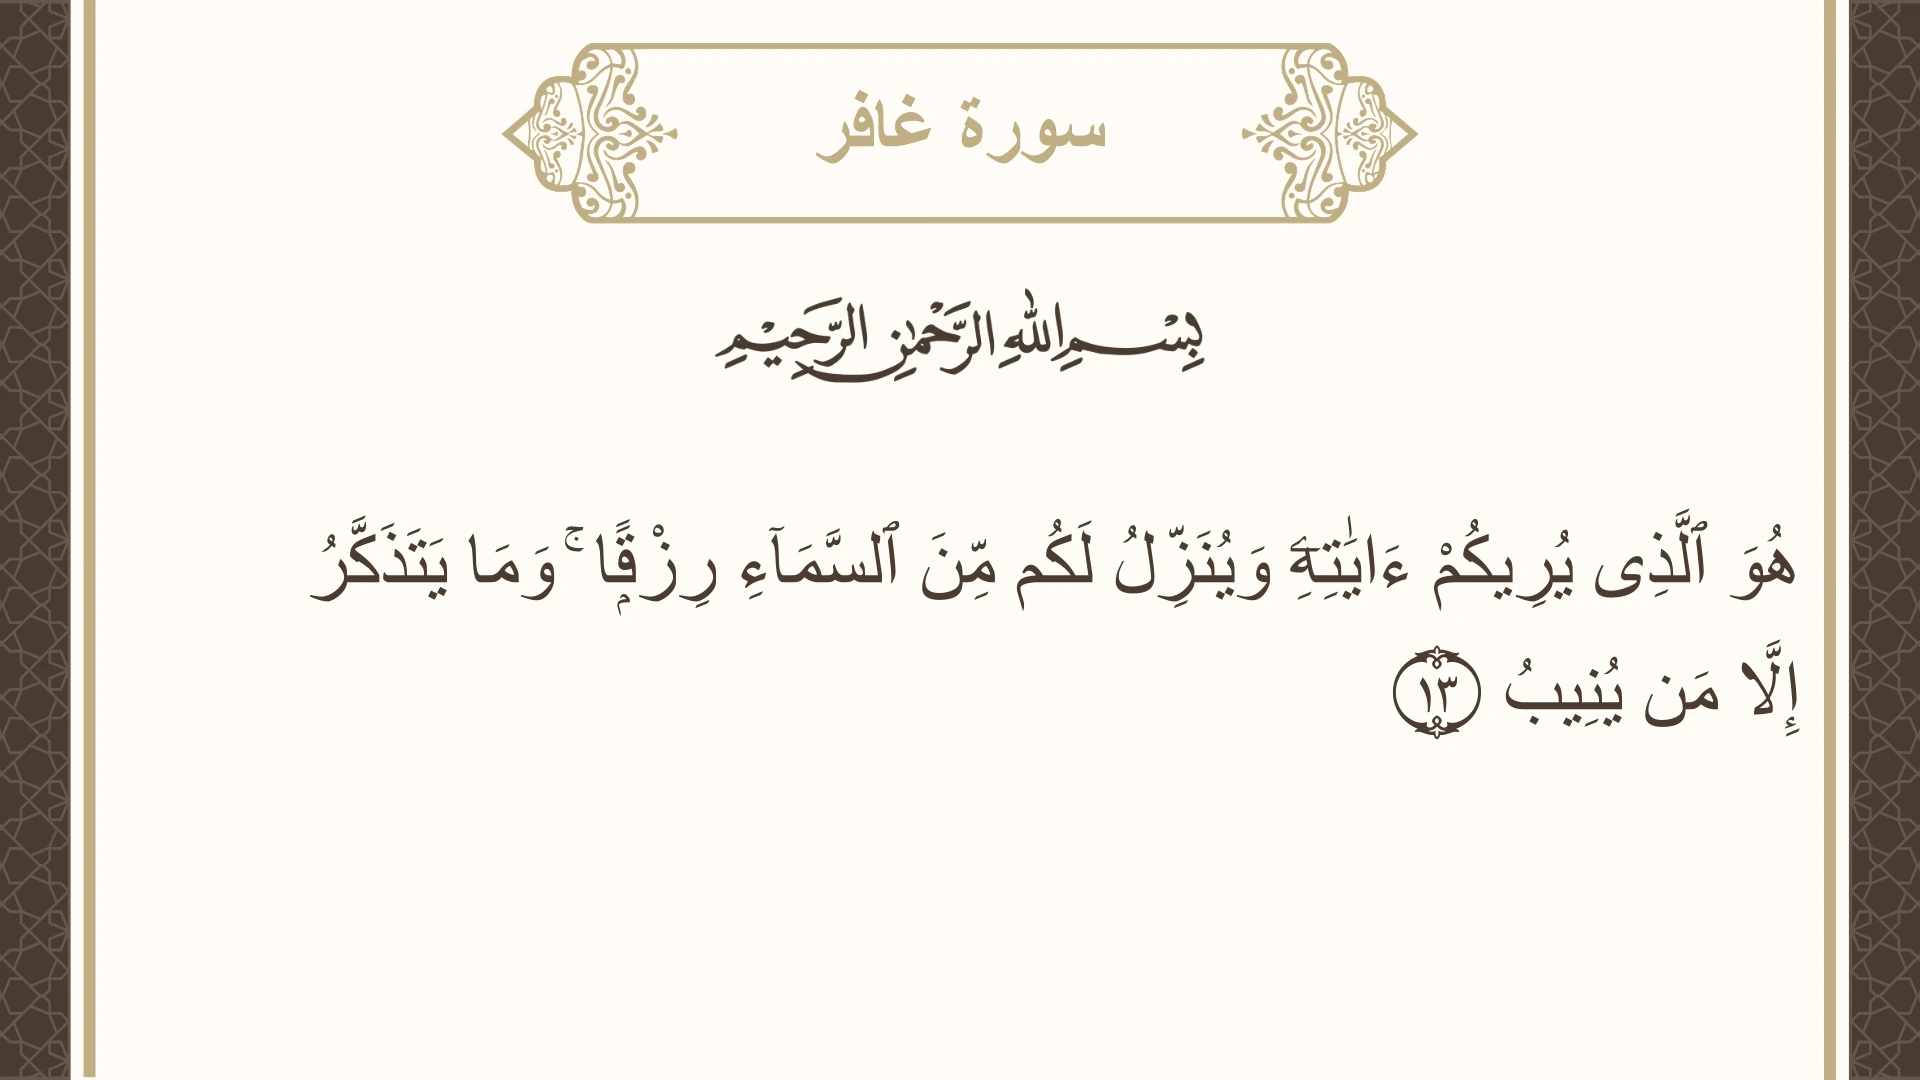 سورة غافر
بِسْمِ اللهِ الرَّحْمٰنِ الرَّحِيْمِ
هُوَ ٱلَّذِى يُرِيكُمْ ءَايَٰتِهِۦ وَيُنَزِّلُ لَكُم مِّنَ ٱلسَّمَآءِ رِزْقًۭا ۚ وَمَا يَتَذَكَّرُ
إِلَّا مَن يُنِيبُ ١٣